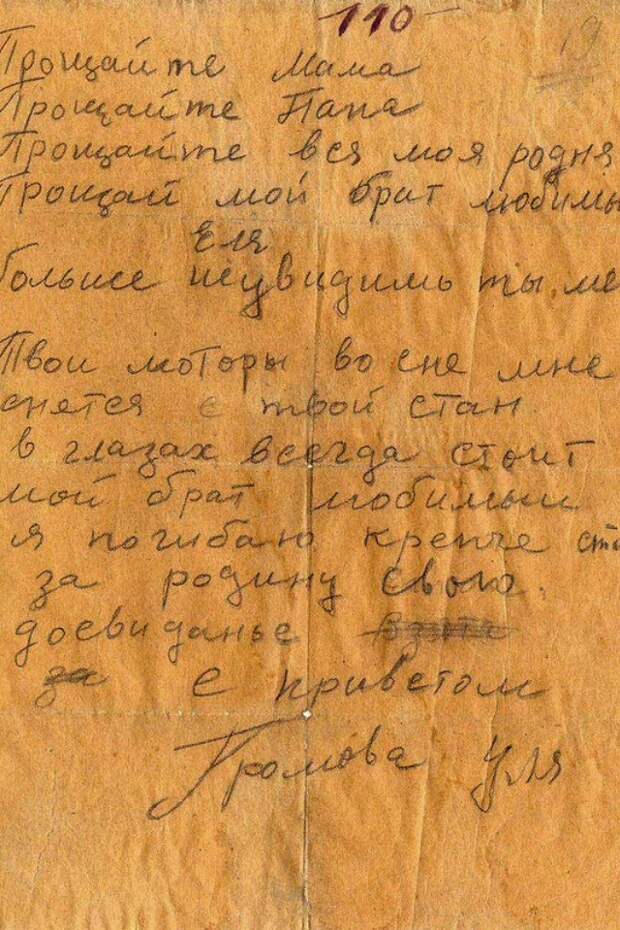 110
19
Прощайте Мама
Прощайте Папа
Прощайте вся моя родня
Прощай мой брат любимы
Еля
больше неувидишь ты ме
Твои моторы во сне мне
снется с твой стан
в глазах всегда стоит
мой брат любимый
я погибаю крепче ст
за родину свою.
досвиданье
за С приветом
Громова Уля